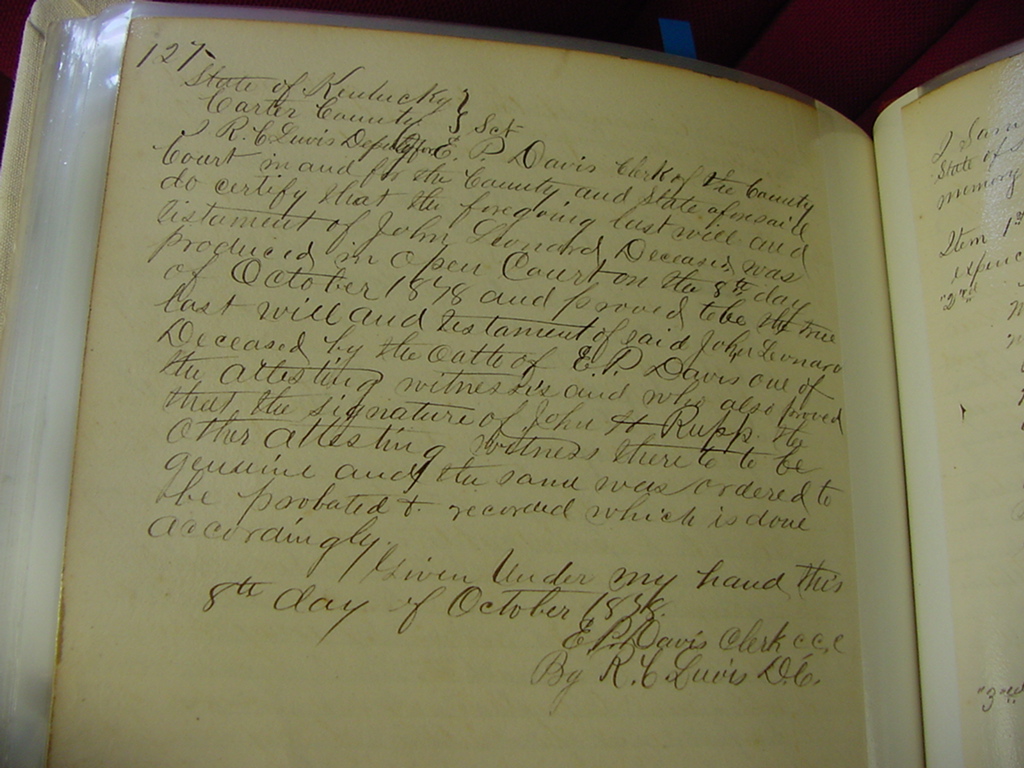 127
State of Kentucky }
Carter County } Sct
I R. C Lewis Deputy for E. P. Davis Clerk of the County
Court in and for the County and State aforesaid
do certify that the foregoing last will and
testament of John Leonard Deceased was
produced in Open Court on the 8th day
of October 1878 and proved to be the true
last will and testament of said John Leonard
Deceased by the oath of E. P. Davis one of
the attesting witnesses and who also proved
that the signature of John H Rupp the
other attesting witness thereto to be
genuine and the same was ordered to
be probated & recorded which is done
accordingly.
Given Under my hand this
8th day of October 1878.
E. P. Davis Clerk C.C.C
By R. C Lewis D.C.
I Sam
State of
memory
Item 1st
expenc
"2nd
"3rd